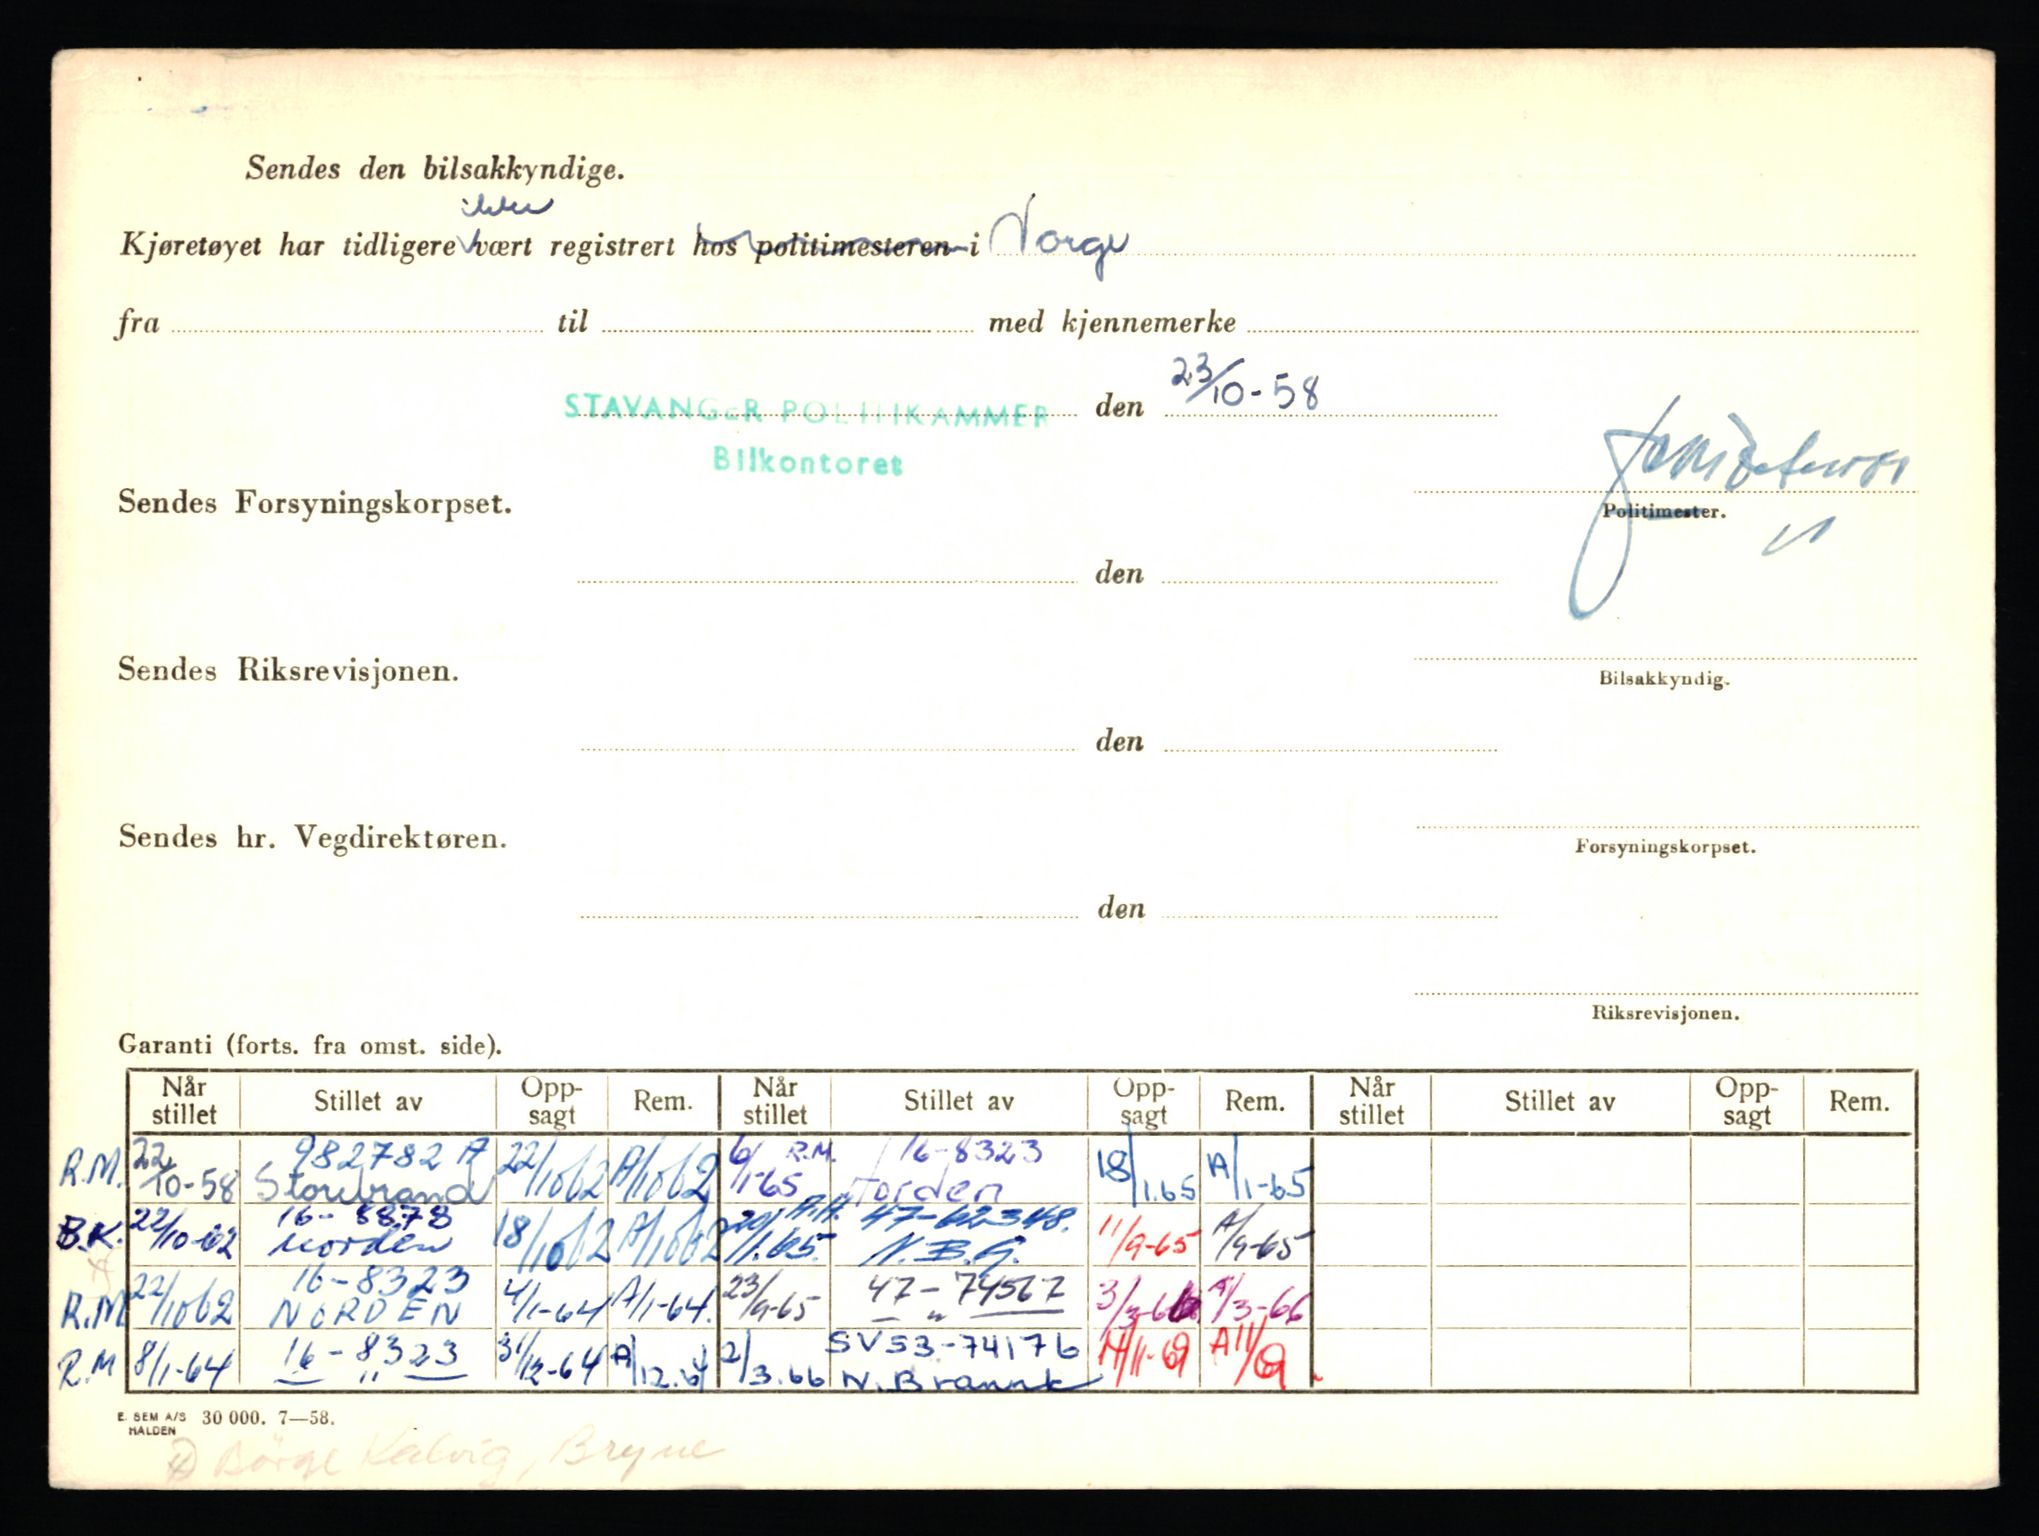 Sendes den bilsakkyndige.
ikke
Kjøretøyet har tidligere vært registrert hos politimesteren i Norge
fra til med kjennemerke
STAVANGER POLITIKAMMER den 23/10-58
Bilkontoret
Sendes Forsyningskorpset.
Politimester.
den
Sendes Riksrevisjonen.
Bilsakkyndig.
den
Sendes hr. Vegdirektøren.
Forsyningskorpset.
den
Riksrevisjonen.
Garanti (forts. fra omst. side).
Når stillet Stillet av Opp-sagt Rem. Når stillet Stillet av Opp-sagt Rem. Når stillet Stillet av Opp-sagt Rem.
R.M. 22/10-58 982782 A Storebrand 22/1062 A/1062 6/1-65 R.M. 16-8323 Norden 18/1.65 A/1-65
B.K. 22/10-62 16-8878 Norden 18/1062 A/1062 /1.65. 47-62348. N.B.G. 11/9-65 A/9-65
R.M 22/1062 16-8323 NORDEN 4/1-64 A/1-64. 23/9-65 47-74567 " 3/3-66 A/3-66
R.M 8/1-64 16-8323 " 31/12-64 A/12.64 2/3.66 SV53-74176 N. Brannk 14/11-69 A11/69
E. SEM A/S 30 000. 7—58.
HALDEN
Börge Kalvig, Bryne